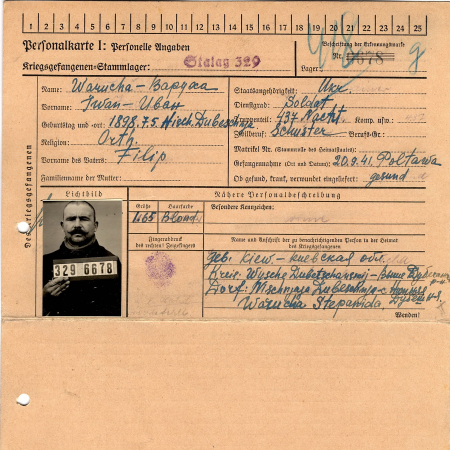 1 2 3 4 5 6 7 8 9 10 11 12 13 14 15 16 17 18 19 20 21 22 23 24 25
Personalkarte I: Personelle Angaben
Beschriftung der Erkennungsmarke
Nr. 6678
Kriegsgefangenen-Stammlager: Stalag 329
Lager:
Des Kriegsgefangenen
Name: Warucha - Варуха
Vorname: Iwan - Иван
Geburtstag und -ort: 1898.7.5
Religion: Orth.
Vorname des Vaters: Filip
Familienname der Mutter:
Staatsangehörigkeit: Ukr
Dienstgrad: Soldat
Truppenteil: 434 Komp. usw.:
Zivilberuf: Schuster Berufs-Gr.:
Matrikel Nr. (Stammrolle des Heimatstaates):
Gefangennahme (Ort und Datum): 20.9.41. Poltawa
Ob gesund, krank, verwundet eingeliefert: gesund
Lichtbild
Nähere Personalbeschreibung
Größe Haarfarbe Besondere Kennzeichen:
165 Blond
329 6678
Fingerabdruck
des rechten! Zeigefingers
Name und Anschrift der zu benachrichtigenden Person in der Heimat
des Kriegsgefangenen
Geb. Kiew - киевская обл.
Kreis
Dorf:
Warucha Stepanida
Wenden!